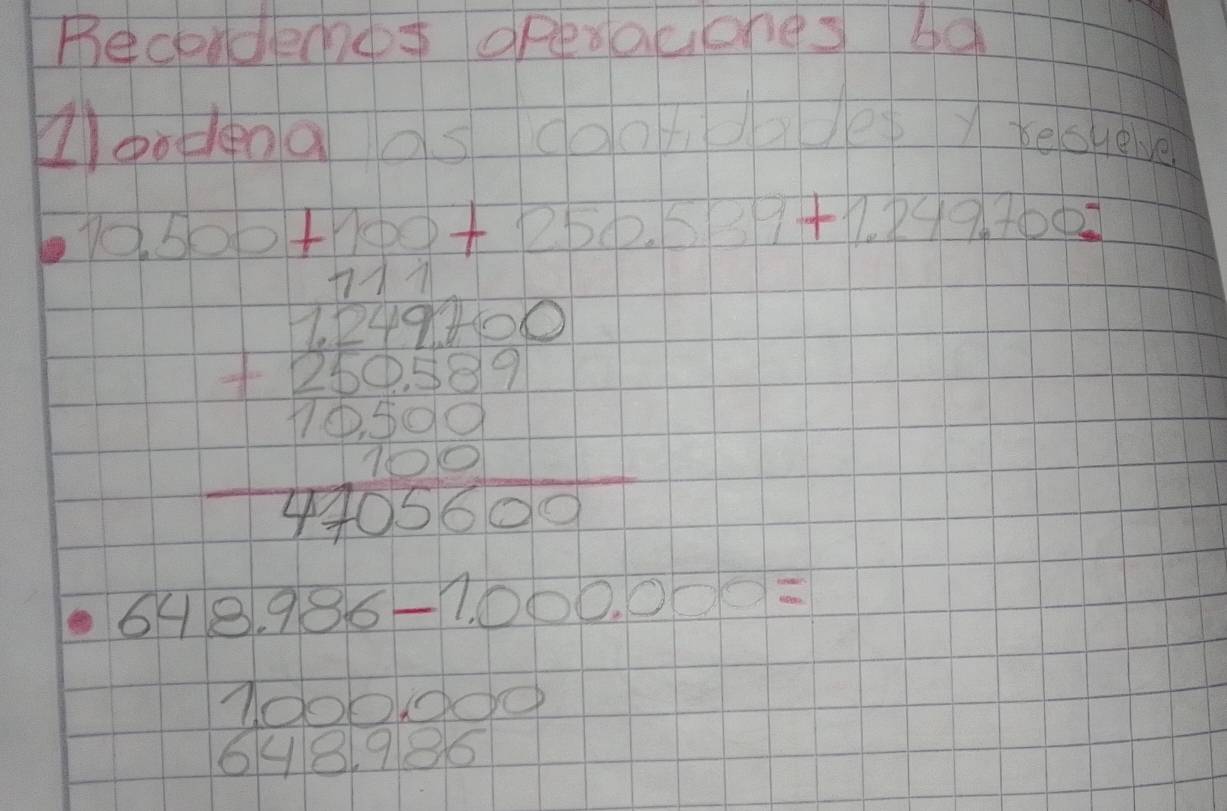 Recordemos operaciones ba
1) ordena las cantidades y resuelve.
10.500 + 100 + 250.589 + 1.249.700 =
111
1.249.700
+ 250.589
10.500
100
4705600
648.986 - 1.000.000 =
1.000.000
648.986